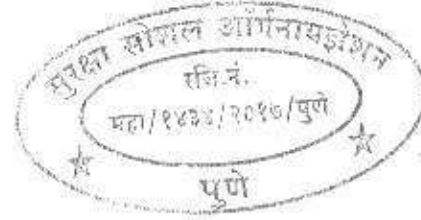 सुरक्षा सोशल ऑर्गनायझेशन
रजि.नं.
महा/१४३४/२०१७/पुणे
पुणे